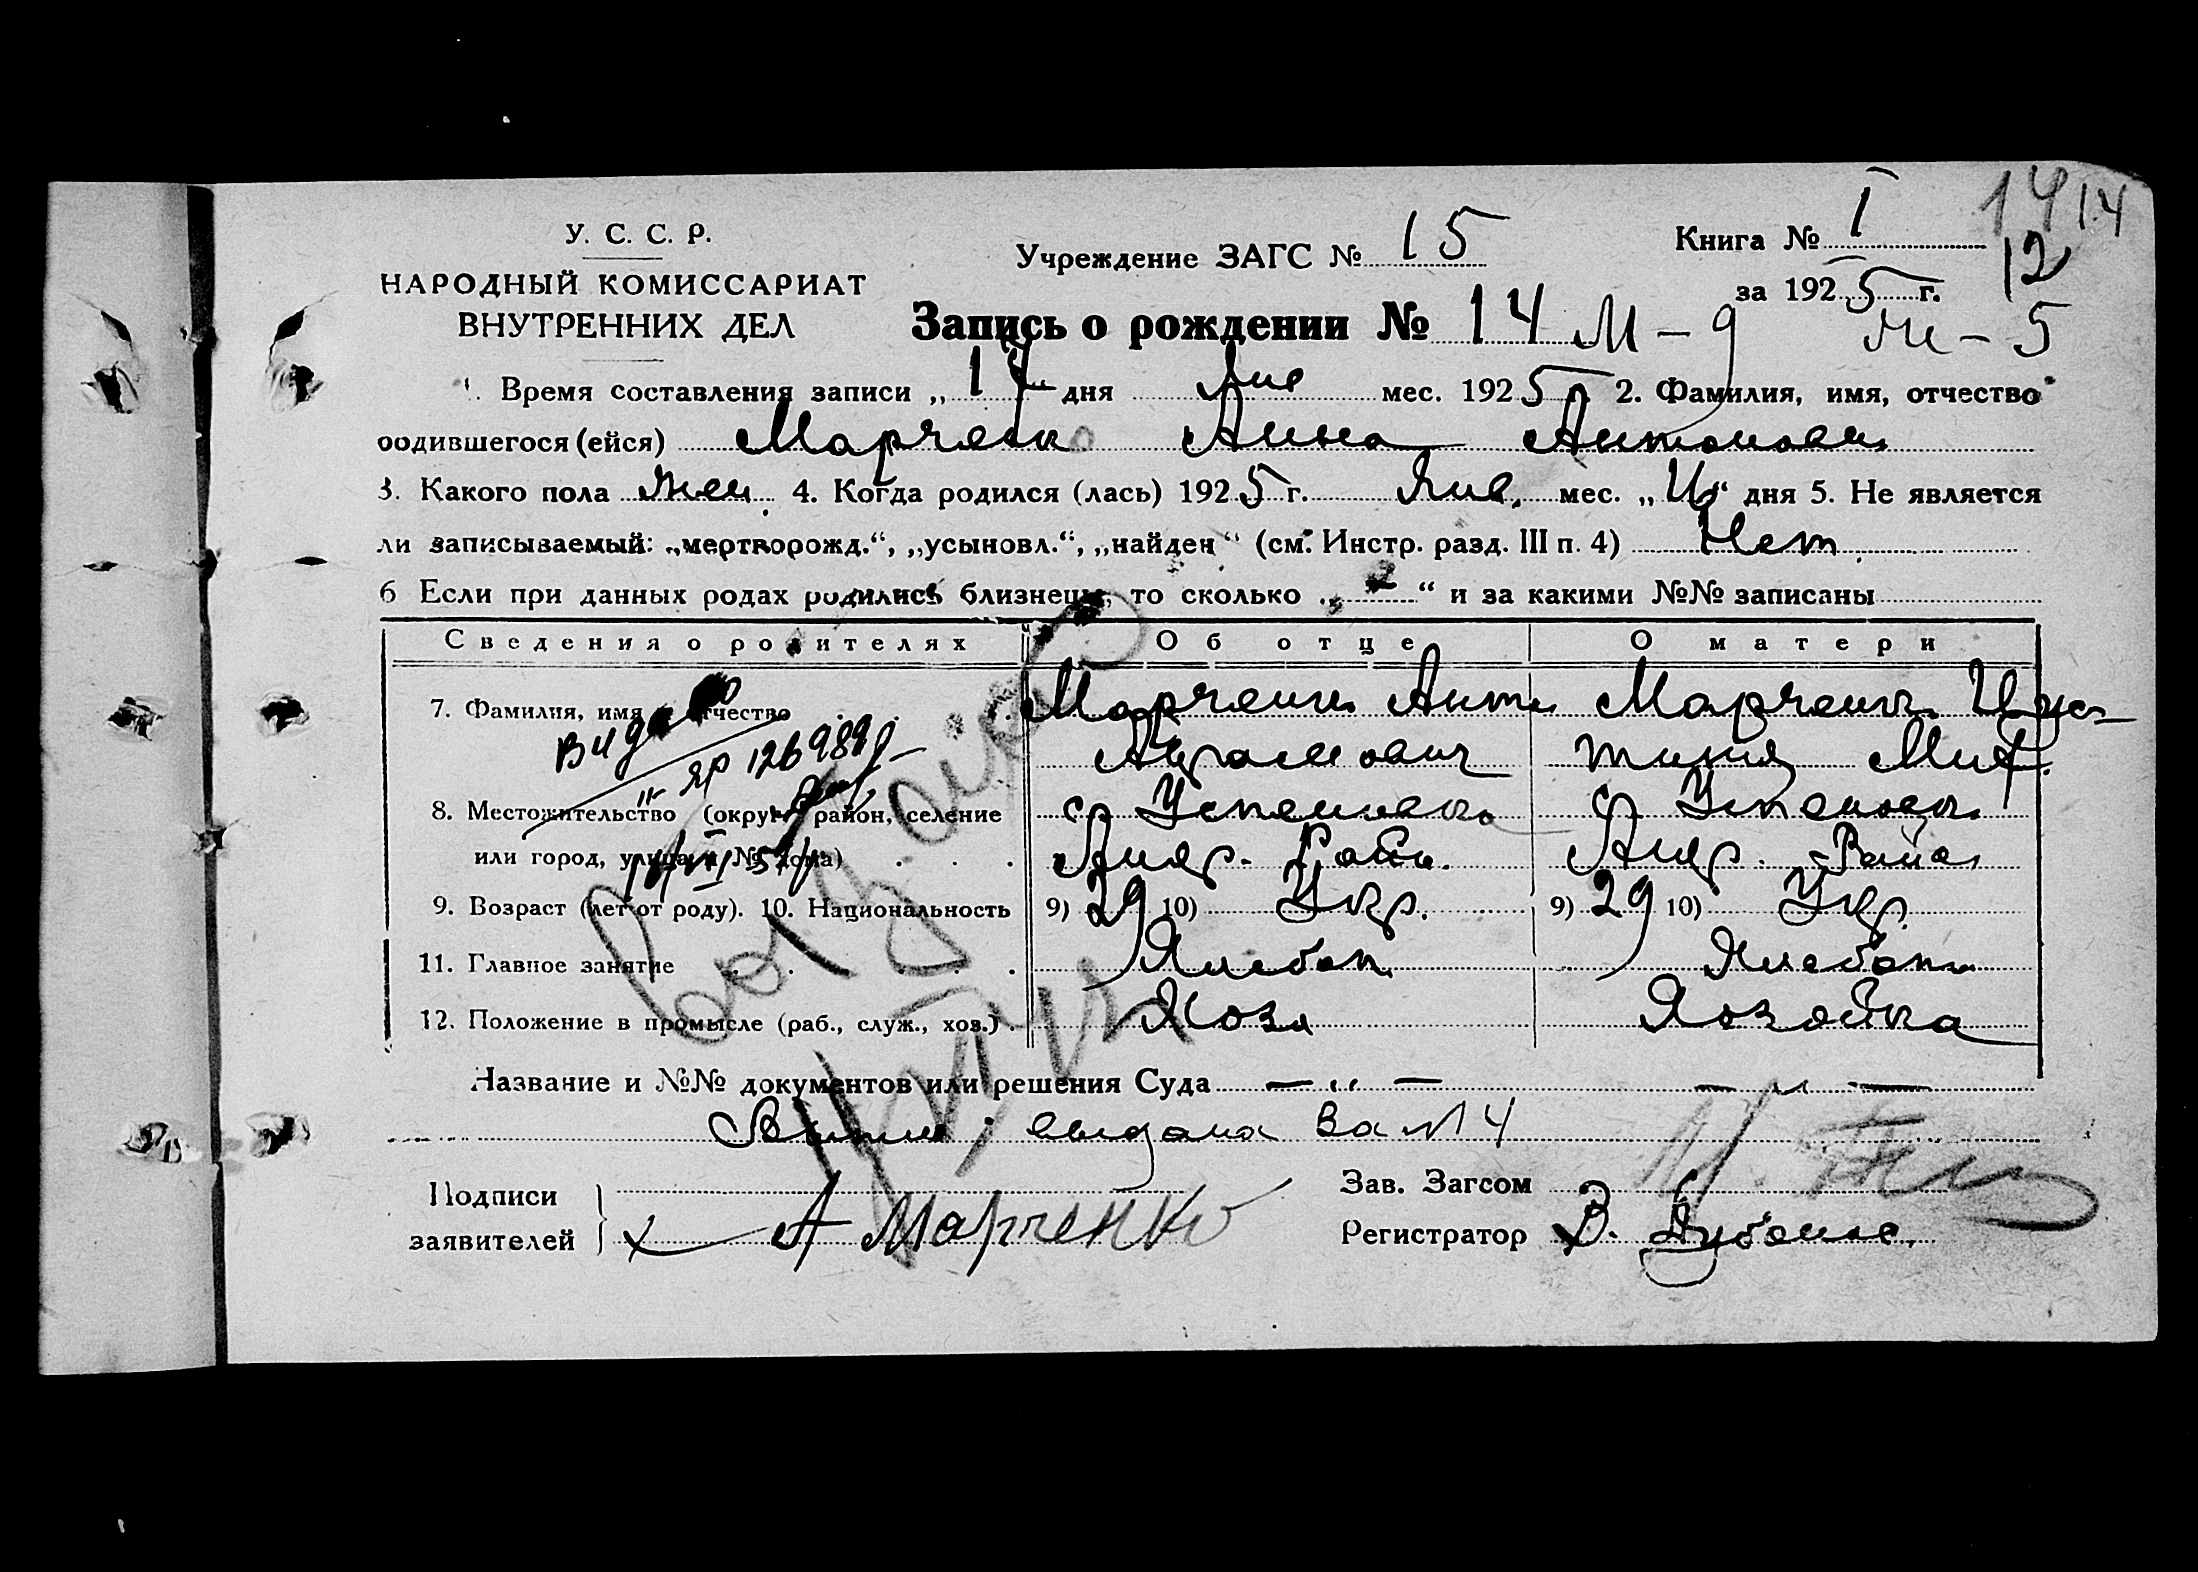 У. С. С. Р.
НАРОДНЫЙ КОМИССАРИАТ
ВНУТРЕННИХ ДЕЛ
Учреждение ЗАГС № 15
Книга № I
14 14
за 1925 г.
12
Запись о рождении № 14 М-9 М-5
1. Время составления записи „14“ дня Янв мес. 1925 2. Фамилия, имя, отчество
родившегося (ейся) Марченко Анна Антоновн
3. Какого пола жен 4. Когда родился (лась) 1925 г. Янв. мес. „“ дня 5. Не является
ли записываемый: „мертворожд.“, „усыновл.“, „найден“ (см. Инстр. разд. III п. 4) Нет
6 Если при данных родах родились близнецы, то сколько „—“ и за какими №№ записаны
Сведения о родителях Об отце О матери
7. Фамилия, имя отчество Марченко Антон Марченко Иус-
Абрамович тиния Мит.
8. Местожительство (округ, район, селение с Успеновка с Успеновка
или город, улица и № дома) Андр. Район Андр. Район
9. Возраст (лет от роду). 10. Национальность 9) 29 10) Укр. 9) 29 10) Укр.
11. Главное занятие Хлебоп. Хлебоп.
12. Положение в промысле (раб., служ., хоз.) Хозя Хозяйка
Название и №№ документов или решения Суда — „ — — „ —
выдана за №14
Подписи
заявителей
А Марченко
Зав. Загсом
Регистратор В.